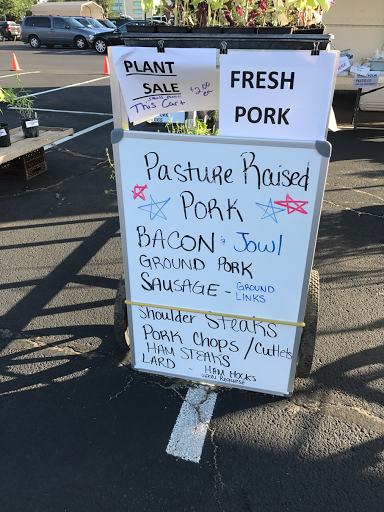 PLANT
SALE
$2.00 ea
small plants
This Cart
FRESH
PORK
Pasture Raised
PORK
BACON & Jowl
GROUND PORK
SAUSAGE - GROUND
- LINKS
Shoulder Steaks
PORK CHOPS / Cutlets
HAM STEAKS
LARD - HAM HOCKS
UPON REQUEST